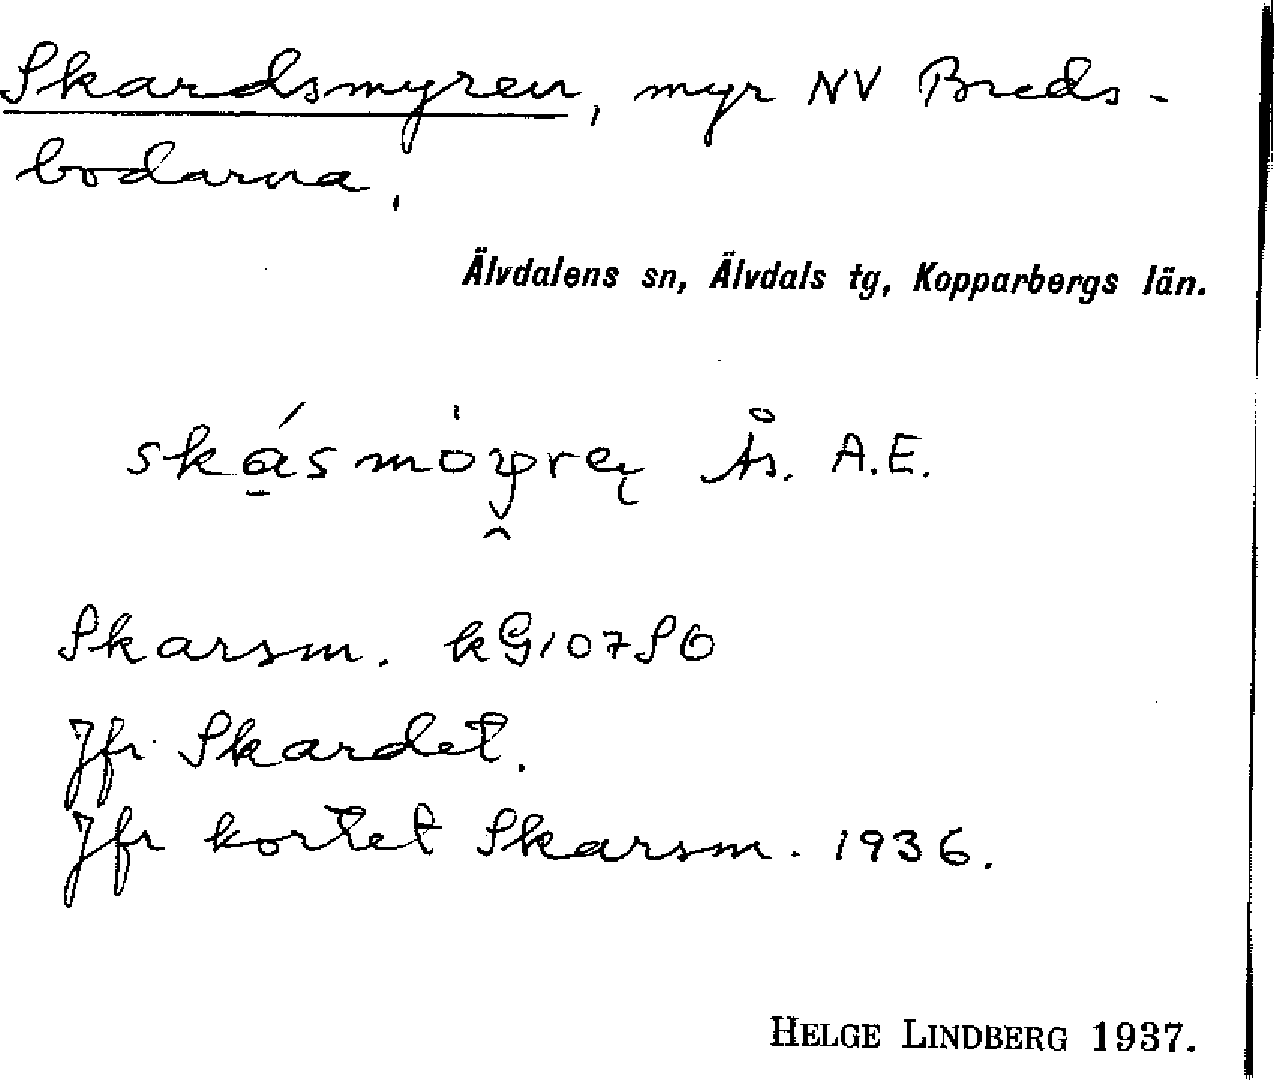 Skardsmyren, myr NV Breds-
bodarna.
Älvdalens sn, Älvdals tg, Kopparbergs län.
Ås. A.E.
Skarsm. kG10750
Jfr Skardet.
Jfr kortet Skarsm. 1936.
HELGE LINDBERG 1937.